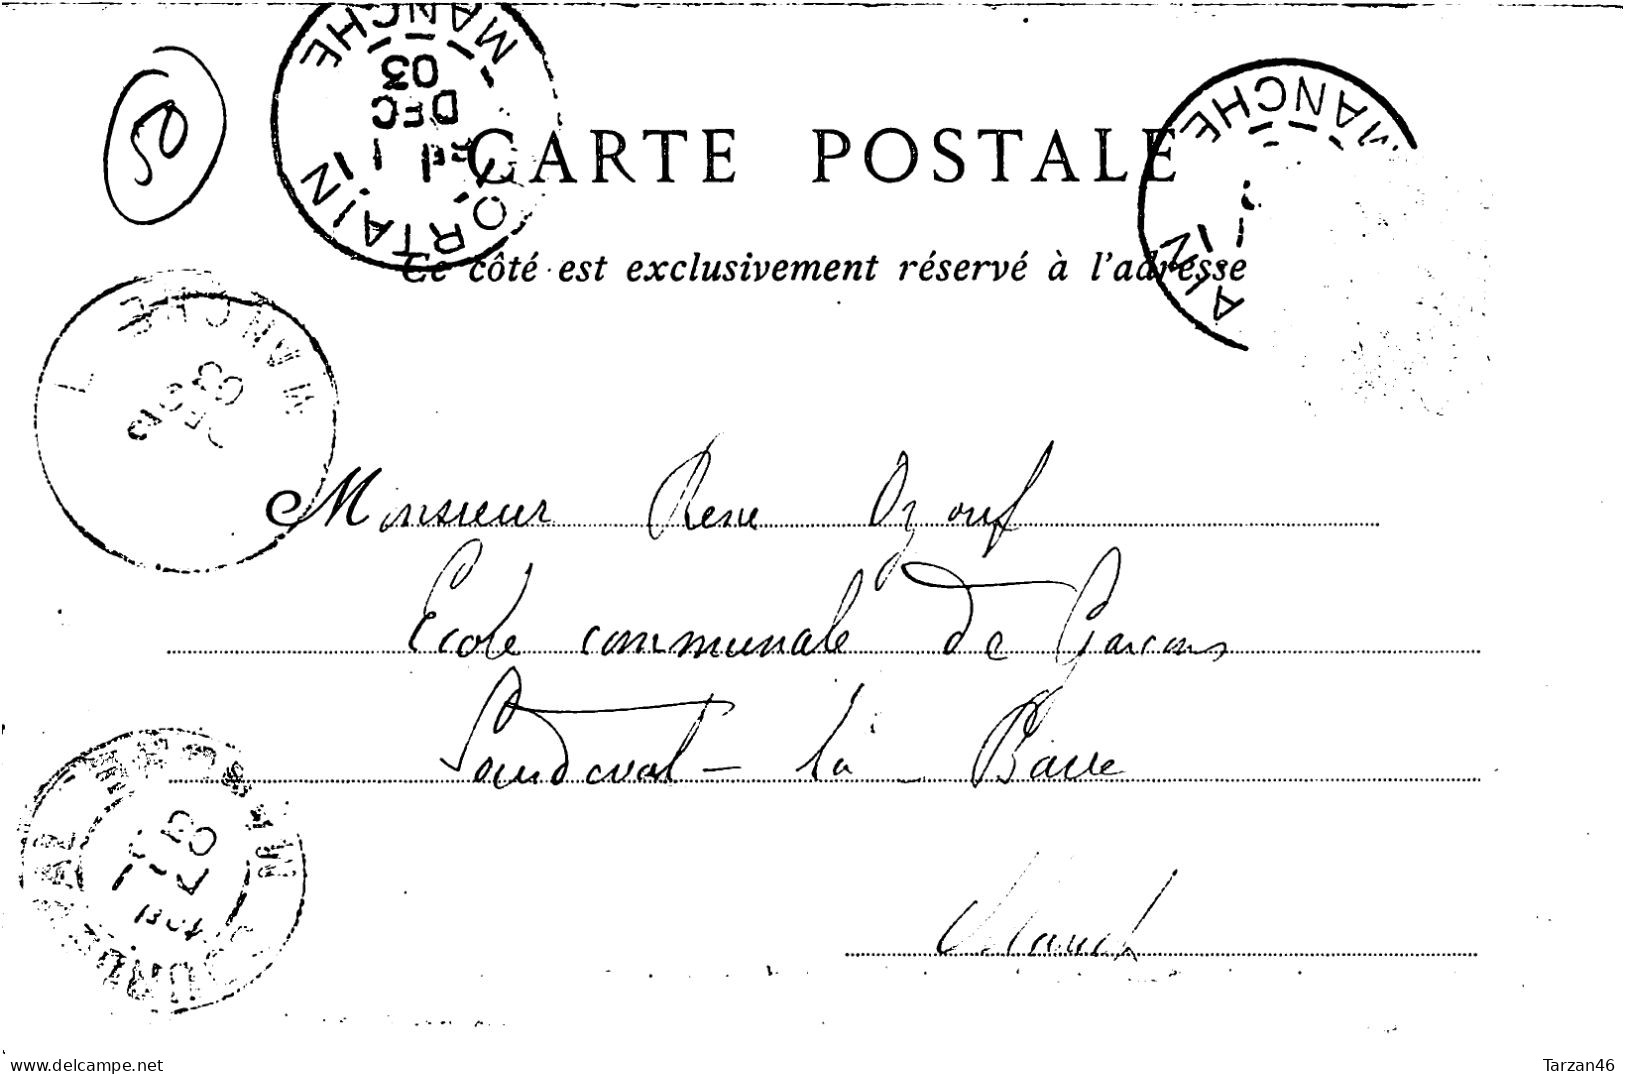 MANCHE
03
DEC
1
MORTAIN
MANCHE
AIN
50
CARTE POSTALE
Ce côté est exclusivement réservé à l'adresse
MANCHE
03
Monsieur René Ozouf
Ecole communale de Garçons
Sourdeval - la - Barre
Manche
MANCHE
03
SOURDEVAL
delcampe.net
Tarzan46